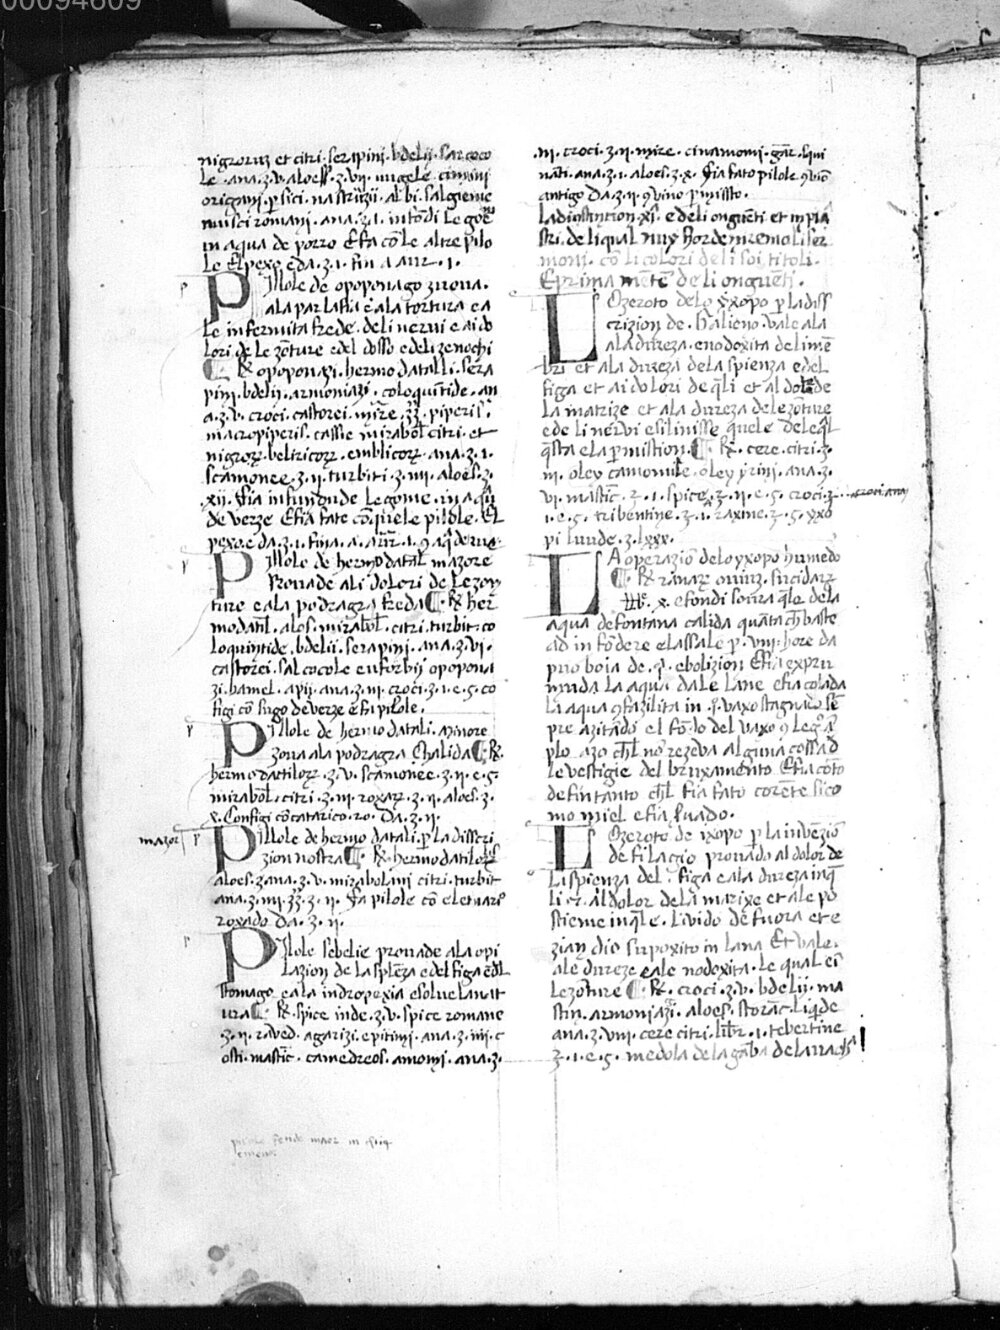 00094609
nigrorum et citri. serapini. bdelij. sarcoco
le. ana. ʒ. v. aloess. ʒ. vij. nigele. cimini
origani. psici. nasturzii. albi. salgieme
musci romani. ana. ʒ. i. intōdi le gōe
in aqua de porro et fa cō le altre pilo
le El pexo e da. ʒ. i. fin a aur. i.
Pillole de opoponago zirova.
ala parlaſia e ala tortura e a
le infermita frede. deli nervi e ai do
lori. de le zōture e del dosso e deli zenochi
¶ ℞ opoponazi. hermodatali. sera
pini. bdelij. armoniazi. coloquītide. an
a. ʒ. v. croci. castorei. mirre. ʒʒ. piperis.
macropiperis. cassie mirabol citri. et
nigror. beltricor. emblicor. ana. ʒ. i.
scamonee. ʒ. ij. turbiti. ʒ. iiij. aloes. ʒ.
xij. fia infundude le gome. in aqua
de verze Et fia fate cō quele pilole. El
pexo e da. ʒ. i. fina. a. aur. i. ꝯ aq̄ de rue
Pillole de hermodatal. mazore
Provade ali dolori de le zon
ture e ala podragra freda ¶ ℞ her
modatil. aloes. mirabol. citri. turbit. co
loquintide. bdelii. serapini. ana. ʒ. vi.
castorei. salcocole euforbij opopona
zi. hamel. apij. ana. ʒ. iij. croci. ʒ. i. e. s. co
figi cō sugo de verze e fa pilole.
Pillole de hermodatali. minore
zova ala podragra Chalida ¶ ℞.
hermodactilor. ʒ. v. scamonee. ʒ. ij. e. s.
mirabol. citri. ʒ. iij. roxar. ʒ. ij. aloes. ʒ.
x. Configi cō catartico. ro. Da. ʒ. ij.
mazor
Pillole de hermodatali. p la discri
zion nostra ¶ ℞ hermodatilor
aloes. zana. ʒ. v. mirabolani citri. turbit
ana. ʒ. iiij. ʒʒ. ʒ. ij. fa pilole cō eletuario
roxado da. ʒ. ij.
Pilole sebelie provade ala opi
lazion de la splēza e del figa e dl
stomago e ala indropexia e solve la nat
ura ¶ ℞ spice inde. ʒ. v. spice romane
ʒ. ij. raved. agarizi. epitimi. ana. ʒ. iiij. c
osti. mastic. camedreos. amomi. ana. ʒ.
.iij. croci. ʒ. ij. mire. cinamomi. gar. squi
nāti. ana. ʒ. i. aloes. ʒ. x. fia fato pilole ꝯ vīo
antigo Da. ʒ. ij. ꝯ vino pmisto.
La distintion. xi. e de li onguēti. et inpia
stri. de li qual nuy hordeniremo li ser
moni. cō li colori de li soi titoli.
E prima mēte de li onguēti.
Lozeroto delo yxopo p la diss
crizion de. halieno. vale ala
ala dureza. e nodoxita de li mē
bri et ala dureza dela spienza e del
figa et ai dolori de q̄li et al dolor de
la matrize et ala dureza dele zōture
e de li nervi e si linisse quele de le q̄l
q̄sta e la pmistion. ¶ ℞. cere. citri. ʒ.
iij. oley camomile. oley yrini. ana. ʒ.
vi. mastic. ʒ. i. spice. ʒ. ij. e. s. croci. ʒ.
i. e. s. tribentine. ʒ. i. raxine. ʒ. s. yxo
pi huude. ʒ. lxxx.
La operaziō delo yxopo humedo
¶ ℞ ranar ovin. sucidar
lib. x. e fondi sovra q̄le de la
aqua de fontana calida quāta ch̄ baste
ad infōdere e lassale p. viij. hore da
puo boia de. 4. ebolizion Et fia expri
muda la aqua da le lane e fia colada
la aqua ꝯ fazilita in. 1. vaxo stagnado sē
pre azitādo el fōdo del vaxo ꝯ legō ā
plo. azo ch̄l nō rezeva alguna cossa d
le vestigie del bruxamento Et fia coto
de fin tanto ch̄l fia fato corēte sico
mo miel e fia suado.
Lozeroto de ixopo p la invēziō
de filagio provado al dolor de
la spienza del figa e ala dureza in q̄
li et. al dolor dela marixe et ale po
stieme in q̄le. livido de fuora et e
zian dio supoxito in lana Et vale.
ale dureze e ale nodoxita. le qual ei
le zōture ¶ ℞. croci. ʒ. v. bdelij. ma
stiz. armoniazi. aloes. storac. liq̄de
ana. ʒ. viij. cere citri. libr. i. tebertine
ʒ. i. e. s. medola dela gāba dela vacha